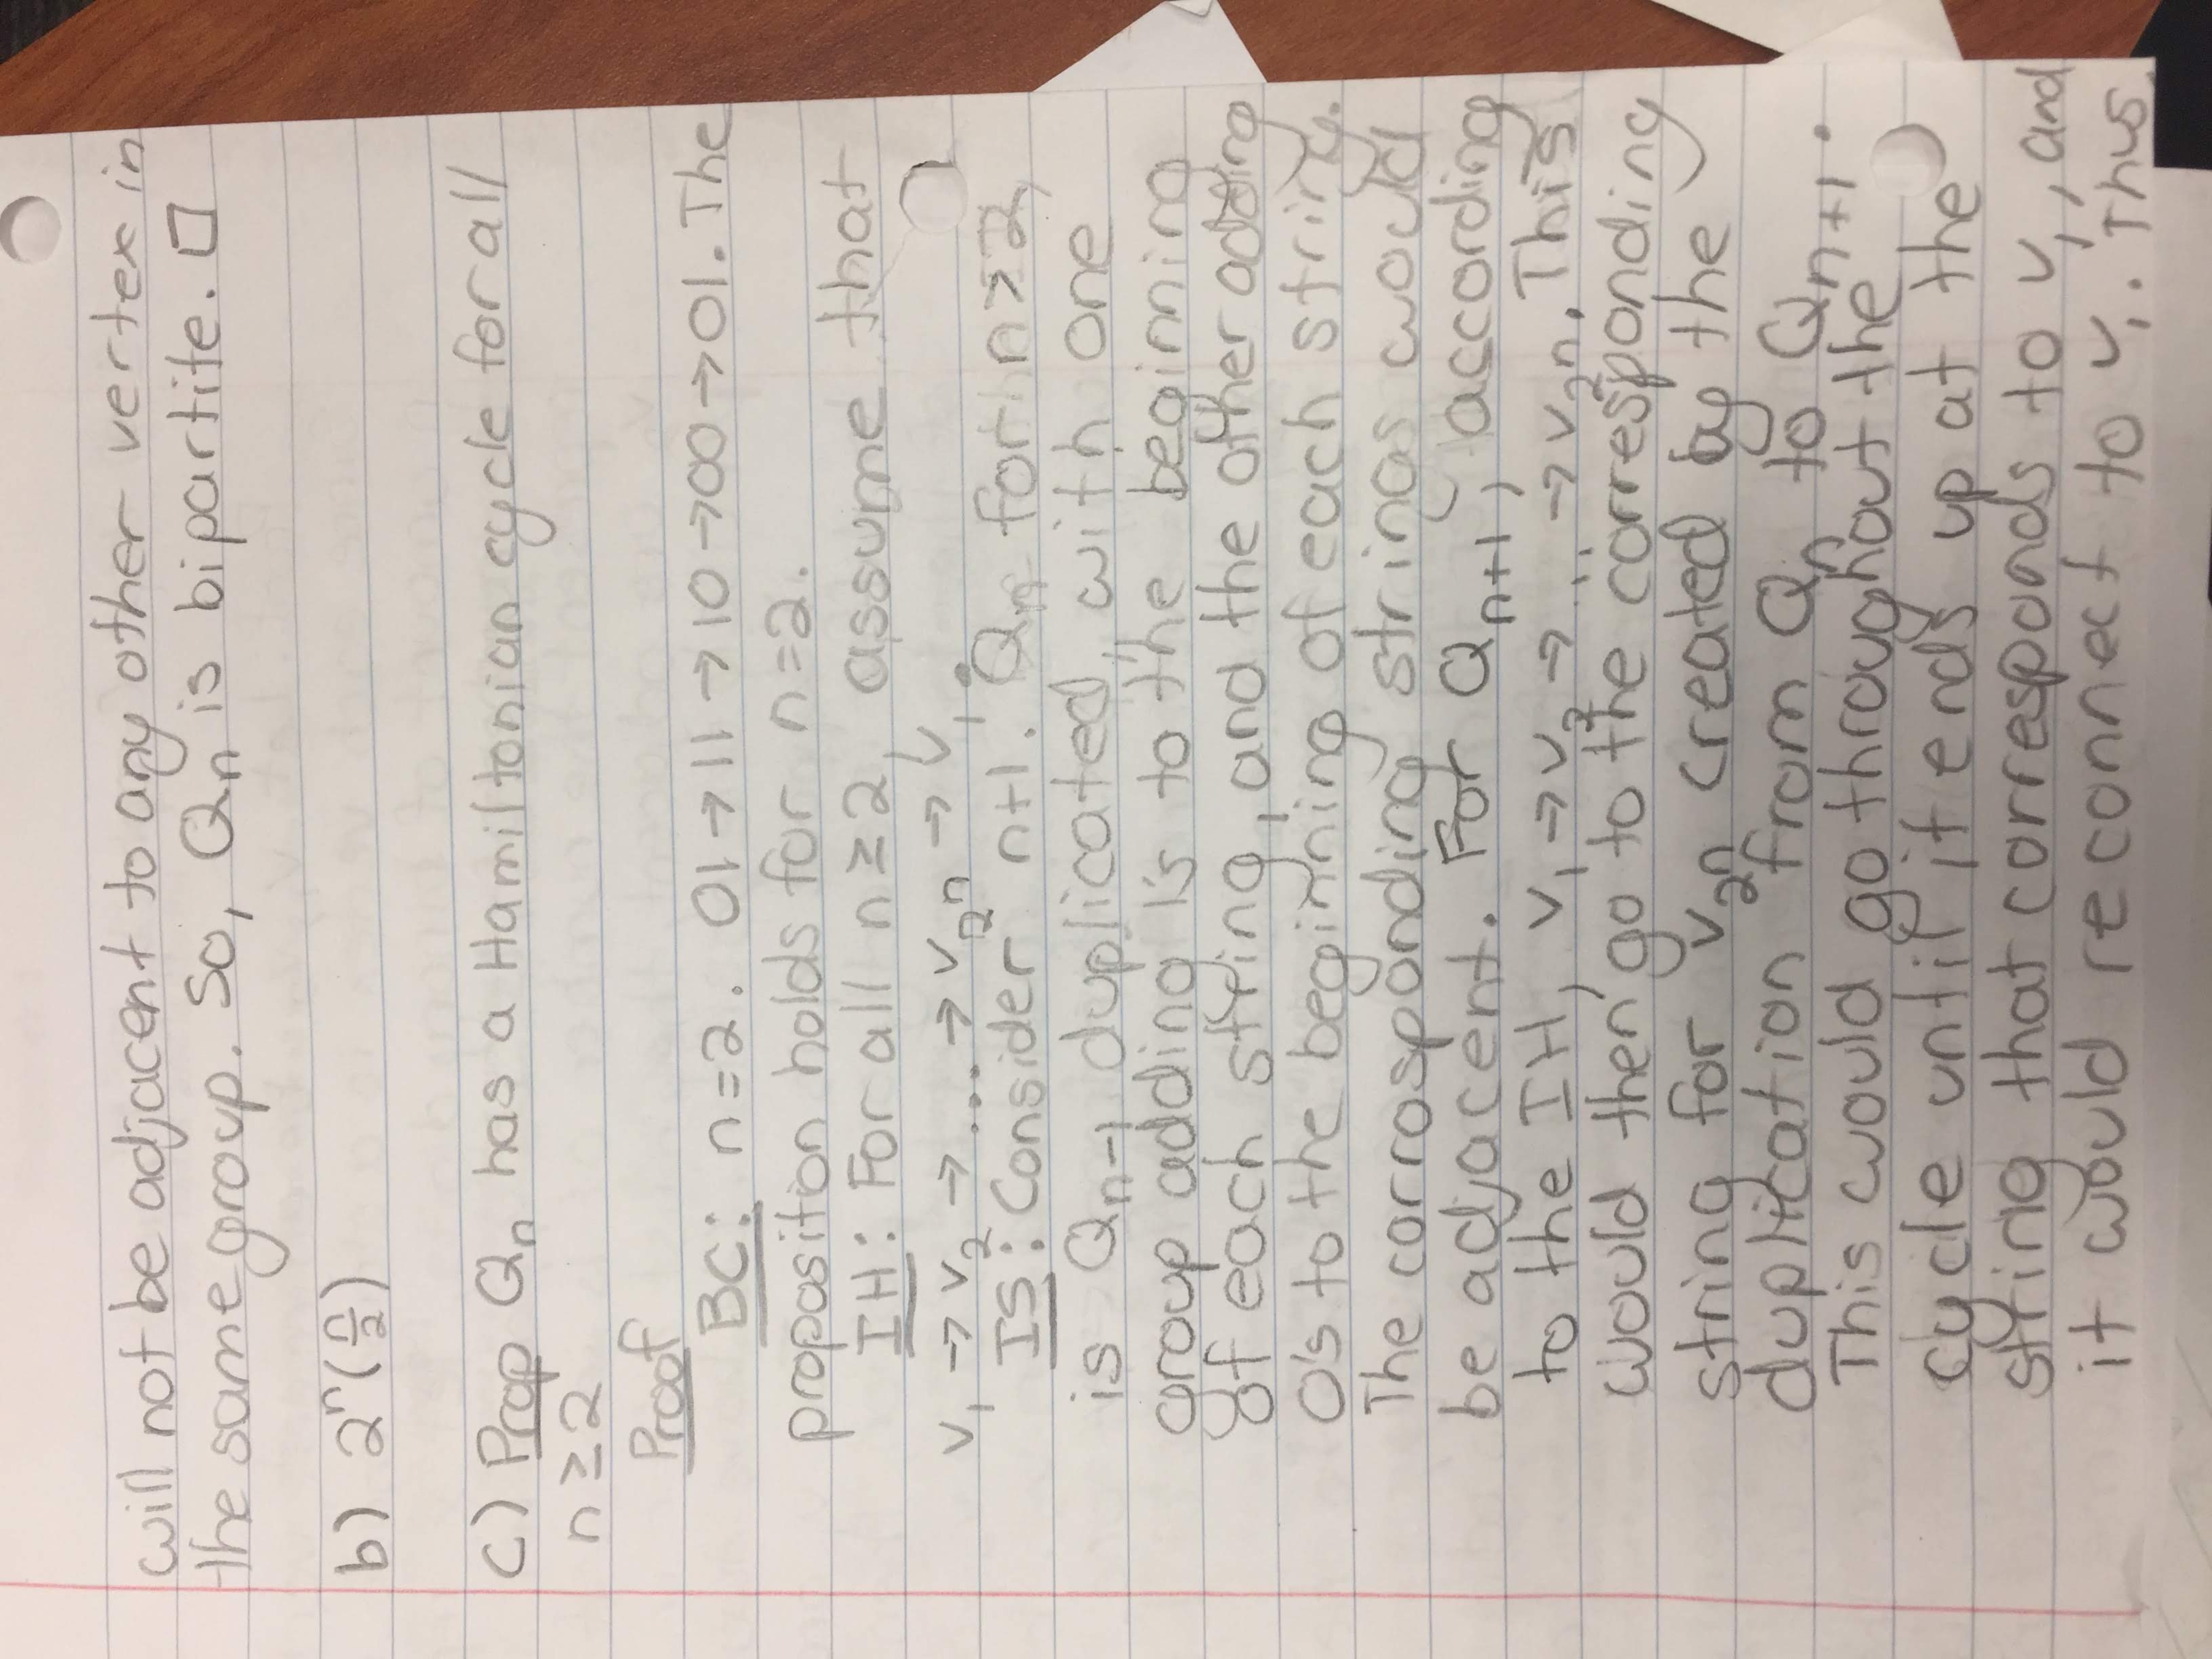 will not be adjacent to any other vertex in
the same group. So, Qₙ is bipartite. □
b) 2ⁿ(n/2)
c) Prop Qₙ has a Hamiltonian cycle for all
n ≥ 2
Proof
BC: n=2. 01→11→10→00→01. The
proposition holds for n=2.
IH: For all n≥2, assume that
v₁ → v₂ → ... → v₂ⁿ → v₁.
IS: Consider n+1. Qₙ for n>2,
is Qₙ₋₁ duplicated, with one
group adding 1's to the beginning
of each string, and the other adding
0's to the beginning of each string.
The corrosponding strings would
be adjacent. For Qₙ₊₁, according
to the IH, v₁→v₂→...→v₂ₙ. This
would then go to the corresponding
string for v₂ₙ created by the
duplication from Qₙ to Qₙ₊₁.
This would go throughout the
cycle until it ends up at the
string that corresponds to v₁, and
it would reconnect to v₁. Thus,